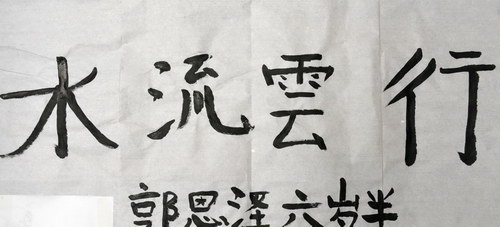 水流雲行
郭恩泽六岁半